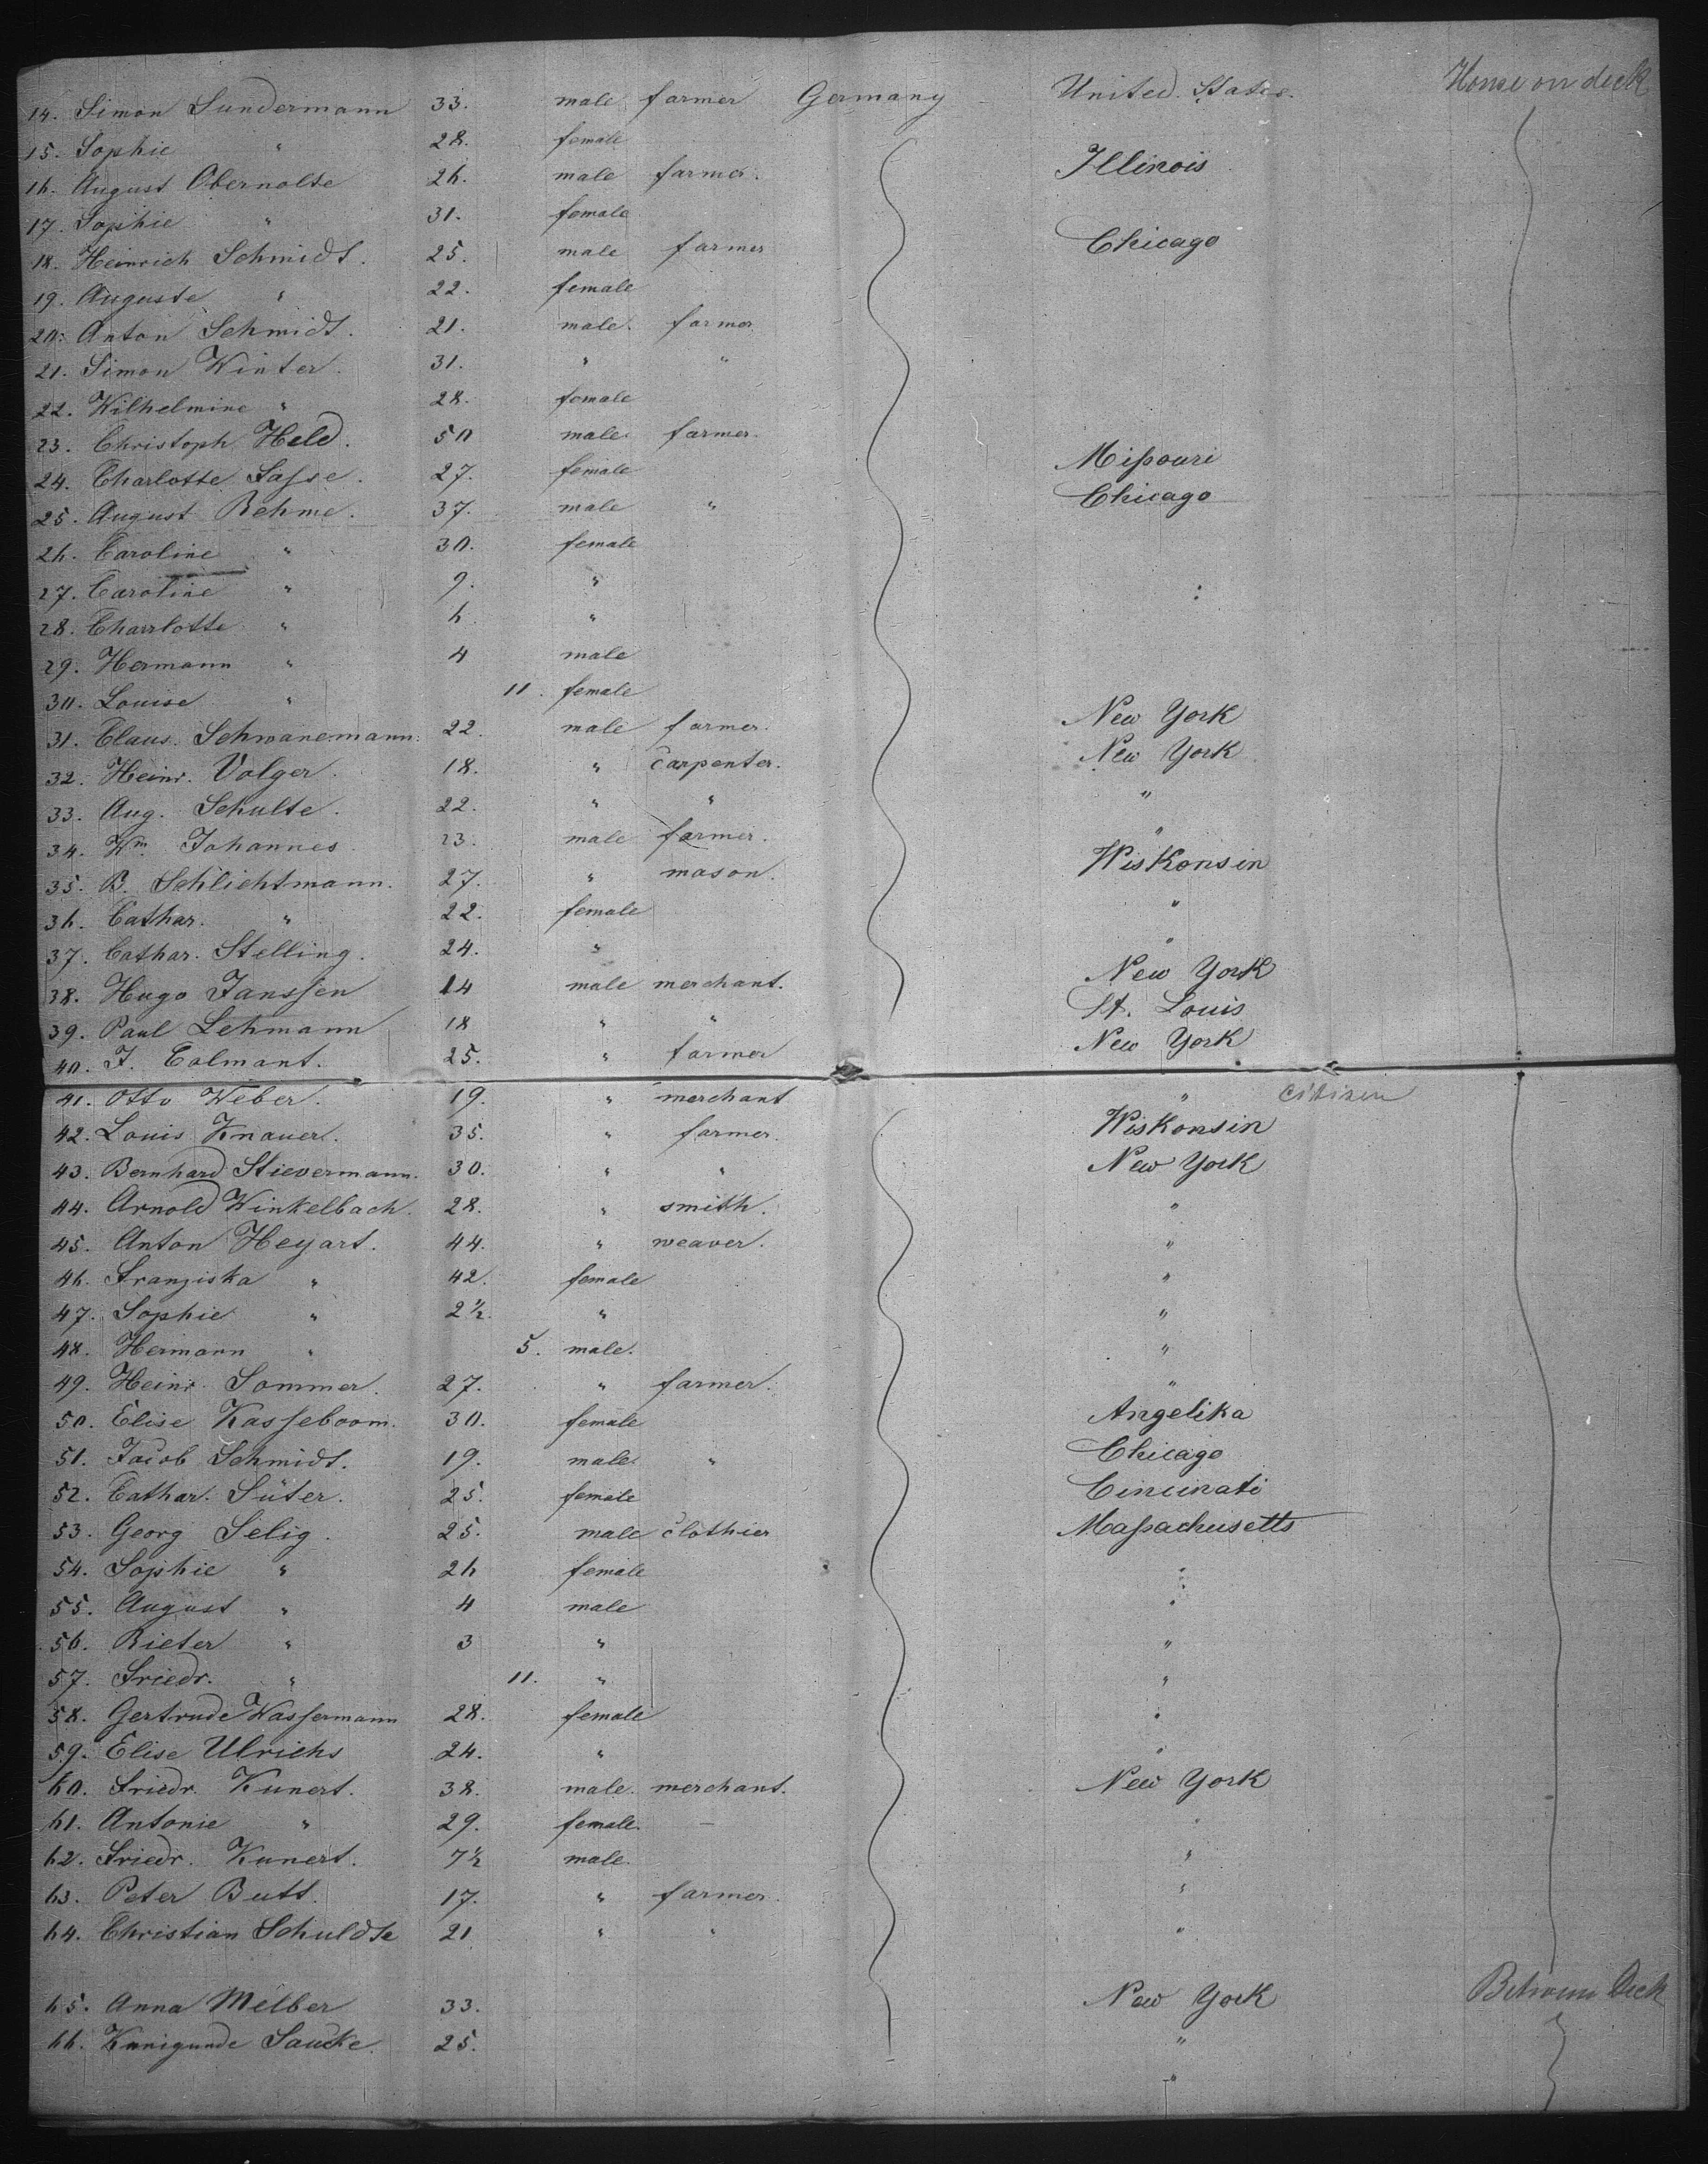 14. Simon Sundermann 33. male farmer Germany United States. House on deck
15. Sophie " 28. female
16. August Obernolte 26. male farmer. Illinois
17. Sophie " 31. female
18. Heinrich Schmidt. 25. male farmer Chicago
19. Auguste " 22. female
20. Anton Schmidt. 21. male. farmer
21. Simon Winter. 31. " "
22. Wilhelmine " 28. female
23. Christoph Held. 50 male farmer.
24. Charlotte Sasse. 27. female Missouri
25. August Rehme. 37. male " Chicago
26. Caroline " 30. female
27. Caroline " 9. "
28. Charrlotte " 6 "
29. Hermann " 4 male
30. Louise " 11. female
31. Claus. Schwanemann. 22. male farmer. New York
32. Heinr. Volger. 18. " carpenter. New York
33. Aug. Schulte. 22. " " "
34. Wm. Johannes. 23. male farmer. "
35. B. Schlichtmann. 27. " mason. Wiskonsin
36. Cathar. " 22. female "
37. Cathar. Stelling. 24. " "
38. Hugo Janssen 14 male merchant. New York
39. Paul Lehmann 18 " " St. Louis
40. J. Colmant. 25. " farmer New York
41. Otto Weber. 19. " merchant " Citizen
42. Louis Knauer. 35. " farmer. Wiskonsin
43. Bernhard Stievermann. 30. " " New York
44. Arnold Winkelbach. 28. " smith. "
45. Anton Heyart. 44. " weaver. "
46. Franziska " 42. female "
47. Sophie " 2½. " "
48. Hermann " 5. male. "
49. Heinr. Sommer. 27. " farmer. "
50. Elise Kasseboom. 30. female Angelika
51. Jacob Schmidt. 19. male. " Chicago
52. Cathar. Süter. 25. female Cincinati
53. Georg Selig. 25. male clothier Massachusetts
54. Sophie " 26 female "
55. August " 4 male "
56. Rieter " 3 " "
57. Friedr. " 11. " "
58. Gertrude Wassermann 28. female "
59. Elise Ulrichs 24. " "
60. Friedr. Kunert. 38. male. merchant. New York
61. Antonie " 29. female. — "
62. Friedr. Kunert. 7½ male. "
63. Peter Butt. 17. " farmer. "
64. Christian Schuldte 21 " " "
65. Anna Melber 33. New York Between Deck
66. Kunigunde Saucke. 25. "
"